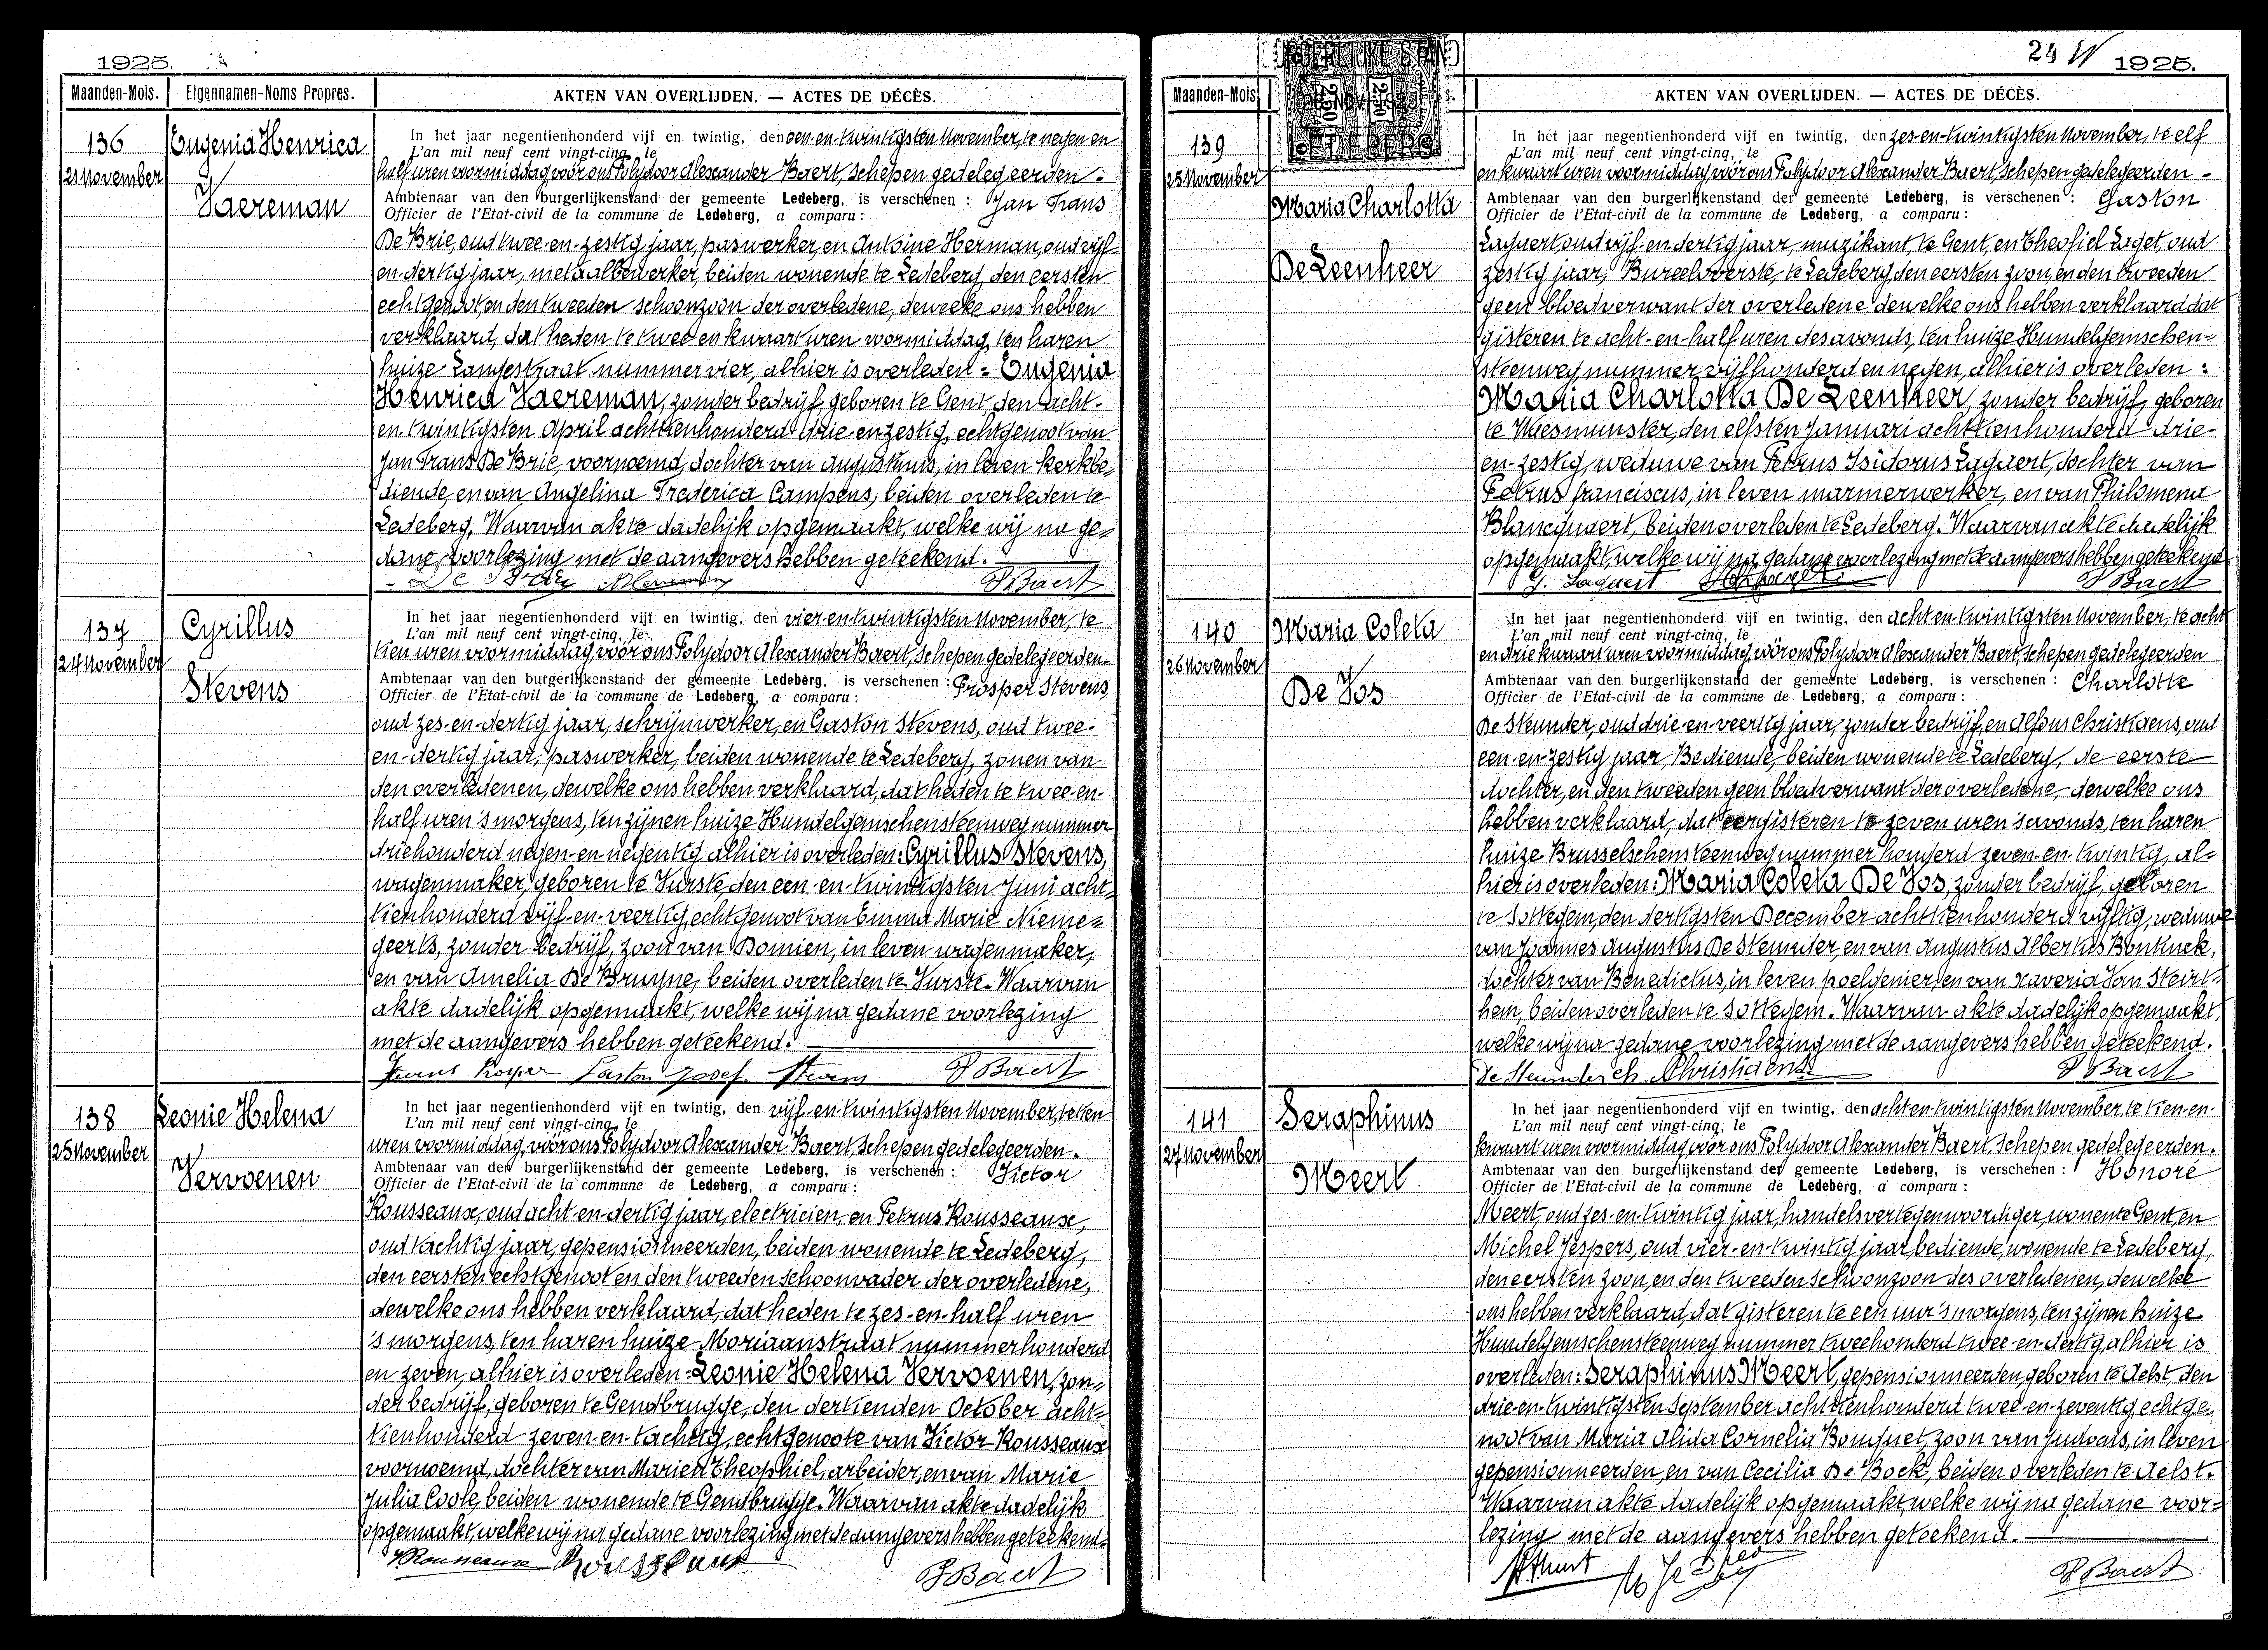 1925.
Maanden-Mois. Eigennamen-Noms Propres. AKTEN VAN OVERLIJDEN. — ACTES DE DÉCÈS.
136
21 November
Eugenia Henrica
Vaereman
In het jaar negentienhonderd vijf en twintig, den een-en-twintigsten November, te negen en
L'an mil neuf cent vingt-cinq, le
half uren voormiddag, vóór ons Polydoor Alexander Baert, Schepen gedelegeerden -
Ambtenaar van den burgerlijkenstand der gemeente Ledeberg, is verschenen : Jan Frans
Officier de l'Etat-civil de la commune de Ledeberg, a comparu :
De Brie, oud twee-en-zestig jaar, paswerker, en Antoine Herman, oud vijf-
en-dertig jaar, metaalbewerker, beiden wonende te Ledeberg, den eersten
echtgenoot, en den tweeden schoonzoon der overledene, dewelke ons hebben
verklaard, dat heden te twee en kwaart uren voormiddag, ten haren
huize Langestraat nummer vier, alhier is overleden : Eugenia
Henrica Vaereman, zonder bedrijf, geboren te Gent, den acht-
en-twintigsten April achttienhonderd drie-en-zestig, echtgenoot van
Jan Frans De Brie, voornoemd, dochter van Augustinus, in leven kerkbe-
diende, en van Angelina Frederica Campens, beiden overleden te
Ledeberg. Waarvan akte dadelijk opgemaakt, welke wij na ge-
dane voorlezing met de aangevers hebben geteekend.
P Baert
137
24 November
Cyrillus
Stevens
In het jaar negentienhonderd vijf en twintig, den vier-en-twintigsten November, te
L'an mil neuf cent vingt-cinq, le
tien uren voormiddag, vóór ons Polydoor Alexander Baert, Schepen gedelegeerden-
Ambtenaar van den burgerlijkenstand der gemeente Ledeberg, is verschenen : Prosper Stevens,
Officier de l'Etat-civil de la commune de Ledeberg, a comparu :
oud zes-en-dertig jaar, schrijnwerker, en Gaston Stevens, oud twee-
en-dertig jaar, paswerker, beiden wonende te Ledeberg, zonen van
den overledenen, dewelke ons hebben verklaard, dat heden te twee-en-
half uren 's morgens, ten zijnen huize Hundelgemschensteenweg nummer
driehonderd negen-en-negentig alhier is overleden : Cyrillus Stevens,
wagenmaker, geboren te Vurste, den een-en-twintigsten Juni acht-
tienhonderd vijf-en-veertig, echtgenoot van Emma Marie Nieme-
geerts, zonder bedrijf, zoon van Domien, in leven wagenmaker,
en van Amelia De Bruyne, beiden overleden te Vurste. Waarvan
akte dadelijk opgemaakt, welke wij na gedane voorlezing
met de aangevers hebben geteekend.
Gaston Josef Stevens P Baert
138
25 November
Leonie Helena
Vervoenen
In het jaar negentienhonderd vijf en twintig, den vijf-en-twintigsten November, te tien
L'an mil neuf cent vingt-cinq, le
uren voormiddag, vóór ons Polydoor Alexander Baert, Schepen gedelegeerden.
Ambtenaar van den burgerlijkenstand der gemeente Ledeberg, is verschenen : Victor
Officier de l'Etat-civil de la commune de Ledeberg, a comparu :
Rousseaux, oud acht-en-dertig jaar, electricien, en Petrus Rousseaux,
oud tachtig jaar, gepensionneerden, beiden wonende te Ledeberg,
den eersten echtgenoot en den tweeden schoonvader der overledene,
dewelke ons hebben verklaard, dat heden te zes-en-half uren
's morgens, ten haren huize Moriaanstraat nummer honderd
en zeven, alhier is overleden : Leonie Helena Vervoenen, zon-
der bedrijf, geboren te Gendbrugge, den dertienden October acht-
tienhonderd zeven-en-tachtig, echtgenoote van Victor Rousseaux
voornoemd, dochter van Marien Theophiel, arbeider, en van Marie
Julia Coole, beiden wonende te Gendbrugge. Waarvan akte dadelijk
opgemaakt, welke wij na gedane voorlezing met de aangevers hebben geteekend.
V Rousseaux Rousseaux P Baert
24 1925.
Maanden-Mois AKTEN VAN OVERLIJDEN. — ACTES DE DÉCÈS.
BURGERLIJKE STAND
LEDEBERG
139
25 November
Maria Charlotta
De Leenheer
In het jaar negentienhonderd vijf en twintig, den zes-en-twintigsten November, te elf
L'an mil neuf cent vingt-cinq, le
en kwaart uren voormiddag, vóór ons Polydoor Alexander Baert, Schepen gedelegeerden -
Ambtenaar van den burgerlijkenstand der gemeente Ledeberg, is verschenen : Gaston
Officier de l'Etat-civil de la commune de Ledeberg, a comparu :
Laquert, oud vijf-en-dertig jaar, muzikant, te Gent, en Theofiel Laget, oud
zestig jaar, Bureeloverste, te Ledeberg, den eersten zoon, en den tweeden
geen bloedverwant der overledene, dewelke ons hebben verklaard dat
gisteren te acht-en-half uren des avonds, ten huize Hundelgemschen-
steenweg nummer vijfhonderd en negen, alhier is overleden :
Maria Charlotta De Leenheer, zonder bedrijf, geboren
te Waesmunster, den elfsten Januari achttienhonderd drie-
en-zestig, weduwe van Petrus Isidorus Laquert, dochter van
Petrus Franciscus, in leven marmerwerker, en van Philomena
Blancquaert, beiden overleden te Ledeberg. Waarvan akte dadelijk
opgemaakt, welke wij na gedane voorlezing met de aangevers hebben geteekend
G. Laquert P Baert
140
26 November
Maria Coleta
De Vos
In het jaar negentienhonderd vijf en twintig, den acht-en-twintigsten November, te acht
L'an mil neuf cent vingt-cinq, le
en drie kwaart uren voormiddag, vóór ons Polydoor Alexander Baert, Schepen gedelegeerden
Ambtenaar van den burgerlijkenstand der gemeente Ledeberg, is verschenen : Charlotte
Officier de l'Etat-civil de la commune de Ledeberg, a comparu :
De Steunder, oud drie-en-veertig jaar, zonder bedrijf, en Alfons Christiaens, oud
een-en-zestig jaar Bediende, beiden wonende te Ledeberg, de eerste
dochter, en den tweeden geen bloedverwant der overledene, dewelke ons
hebben verklaard, dat eergisteren te zeven uren 's avonds, ten haren
huize Brusselschensteenweg nummer honderd zeven-en-twintig, al-
hier is overleden : Maria Coleta De Vos, zonder bedrijf, geboren
te Sottegem, den dertigsten December achttienhonderd vijftig, weduwe
van Joannes Augustus De Steunder, en van Augustus Albertus Bontinck,
dochter van Benedictus, in leven poelgenier, en van Xaveria Van Steirt-
hem, beiden overleden te Sottegem. Waarvan akte dadelijk opgemaakt,
welke wij na gedane voorlezing met de aangevers hebben geteekend.
De Steunder Ch Christiaens P Baert
141
27 November
Seraphinus
Meert
In het jaar negentienhonderd vijf en twintig, den acht-en-twintigsten November, te tien-en-
L'an mil neuf cent vingt-cinq, le
kwaart uren voormiddag, vóór ons Polydoor Alexander Baert, Schepen gedelegeerden.
Ambtenaar van den burgerlijkenstand der gemeente Ledeberg, is verschenen : Honoré
Officier de l'Etat-civil de la commune de Ledeberg, a comparu :
Meert, oud zes-en-twintig jaar, handelsvertegenwoordiger, wonen te Gent, en
Michel Jespers, oud vier-en-twintig jaar, bediende, wonende te Ledeberg,
den eersten zoon, en den tweeden schoonzoon des overledenen, dewelke
ons hebben verklaard, dat gisteren te een uur 's morgens, ten zijnen huize
Hundelgemschensteenweg nummer tweehonderd twee-en-dertig, alhier is
overleden : Seraphinus Meert, gepensionneerden, geboren te Aelst, den
drie-en-twintigsten September achttienhonderd twee-en-zeventig, echtge-
noot van Maria Alida Cornelia Bouquet, zoon van Judocus, in leven
gepensionneerden, en van Cecilia De Bock, beiden overleden te Aelst.
Waarvan akte dadelijk opgemaakt welke wij na gedane voor-
lezing met de aangevers hebben geteekend.
P Baert